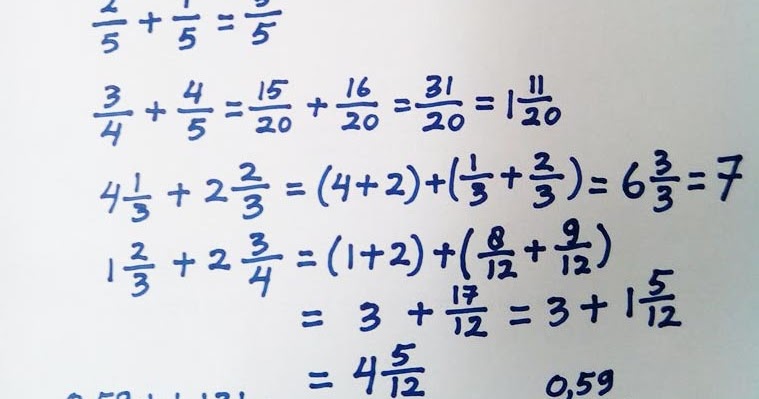 2/5 + 1/5 = 3/5
3/4 + 4/5 = 15/20 + 16/20 = 31/20 = 1 11/20
4 1/3 + 2 2/3 = (4+2)+(1/3 + 2/3) = 6 3/3 = 7
1 2/3 + 2 3/4 = (1+2)+(8/12 + 9/12)
= 3 + 17/12 = 3 + 1 5/12
= 4 5/12
0,59